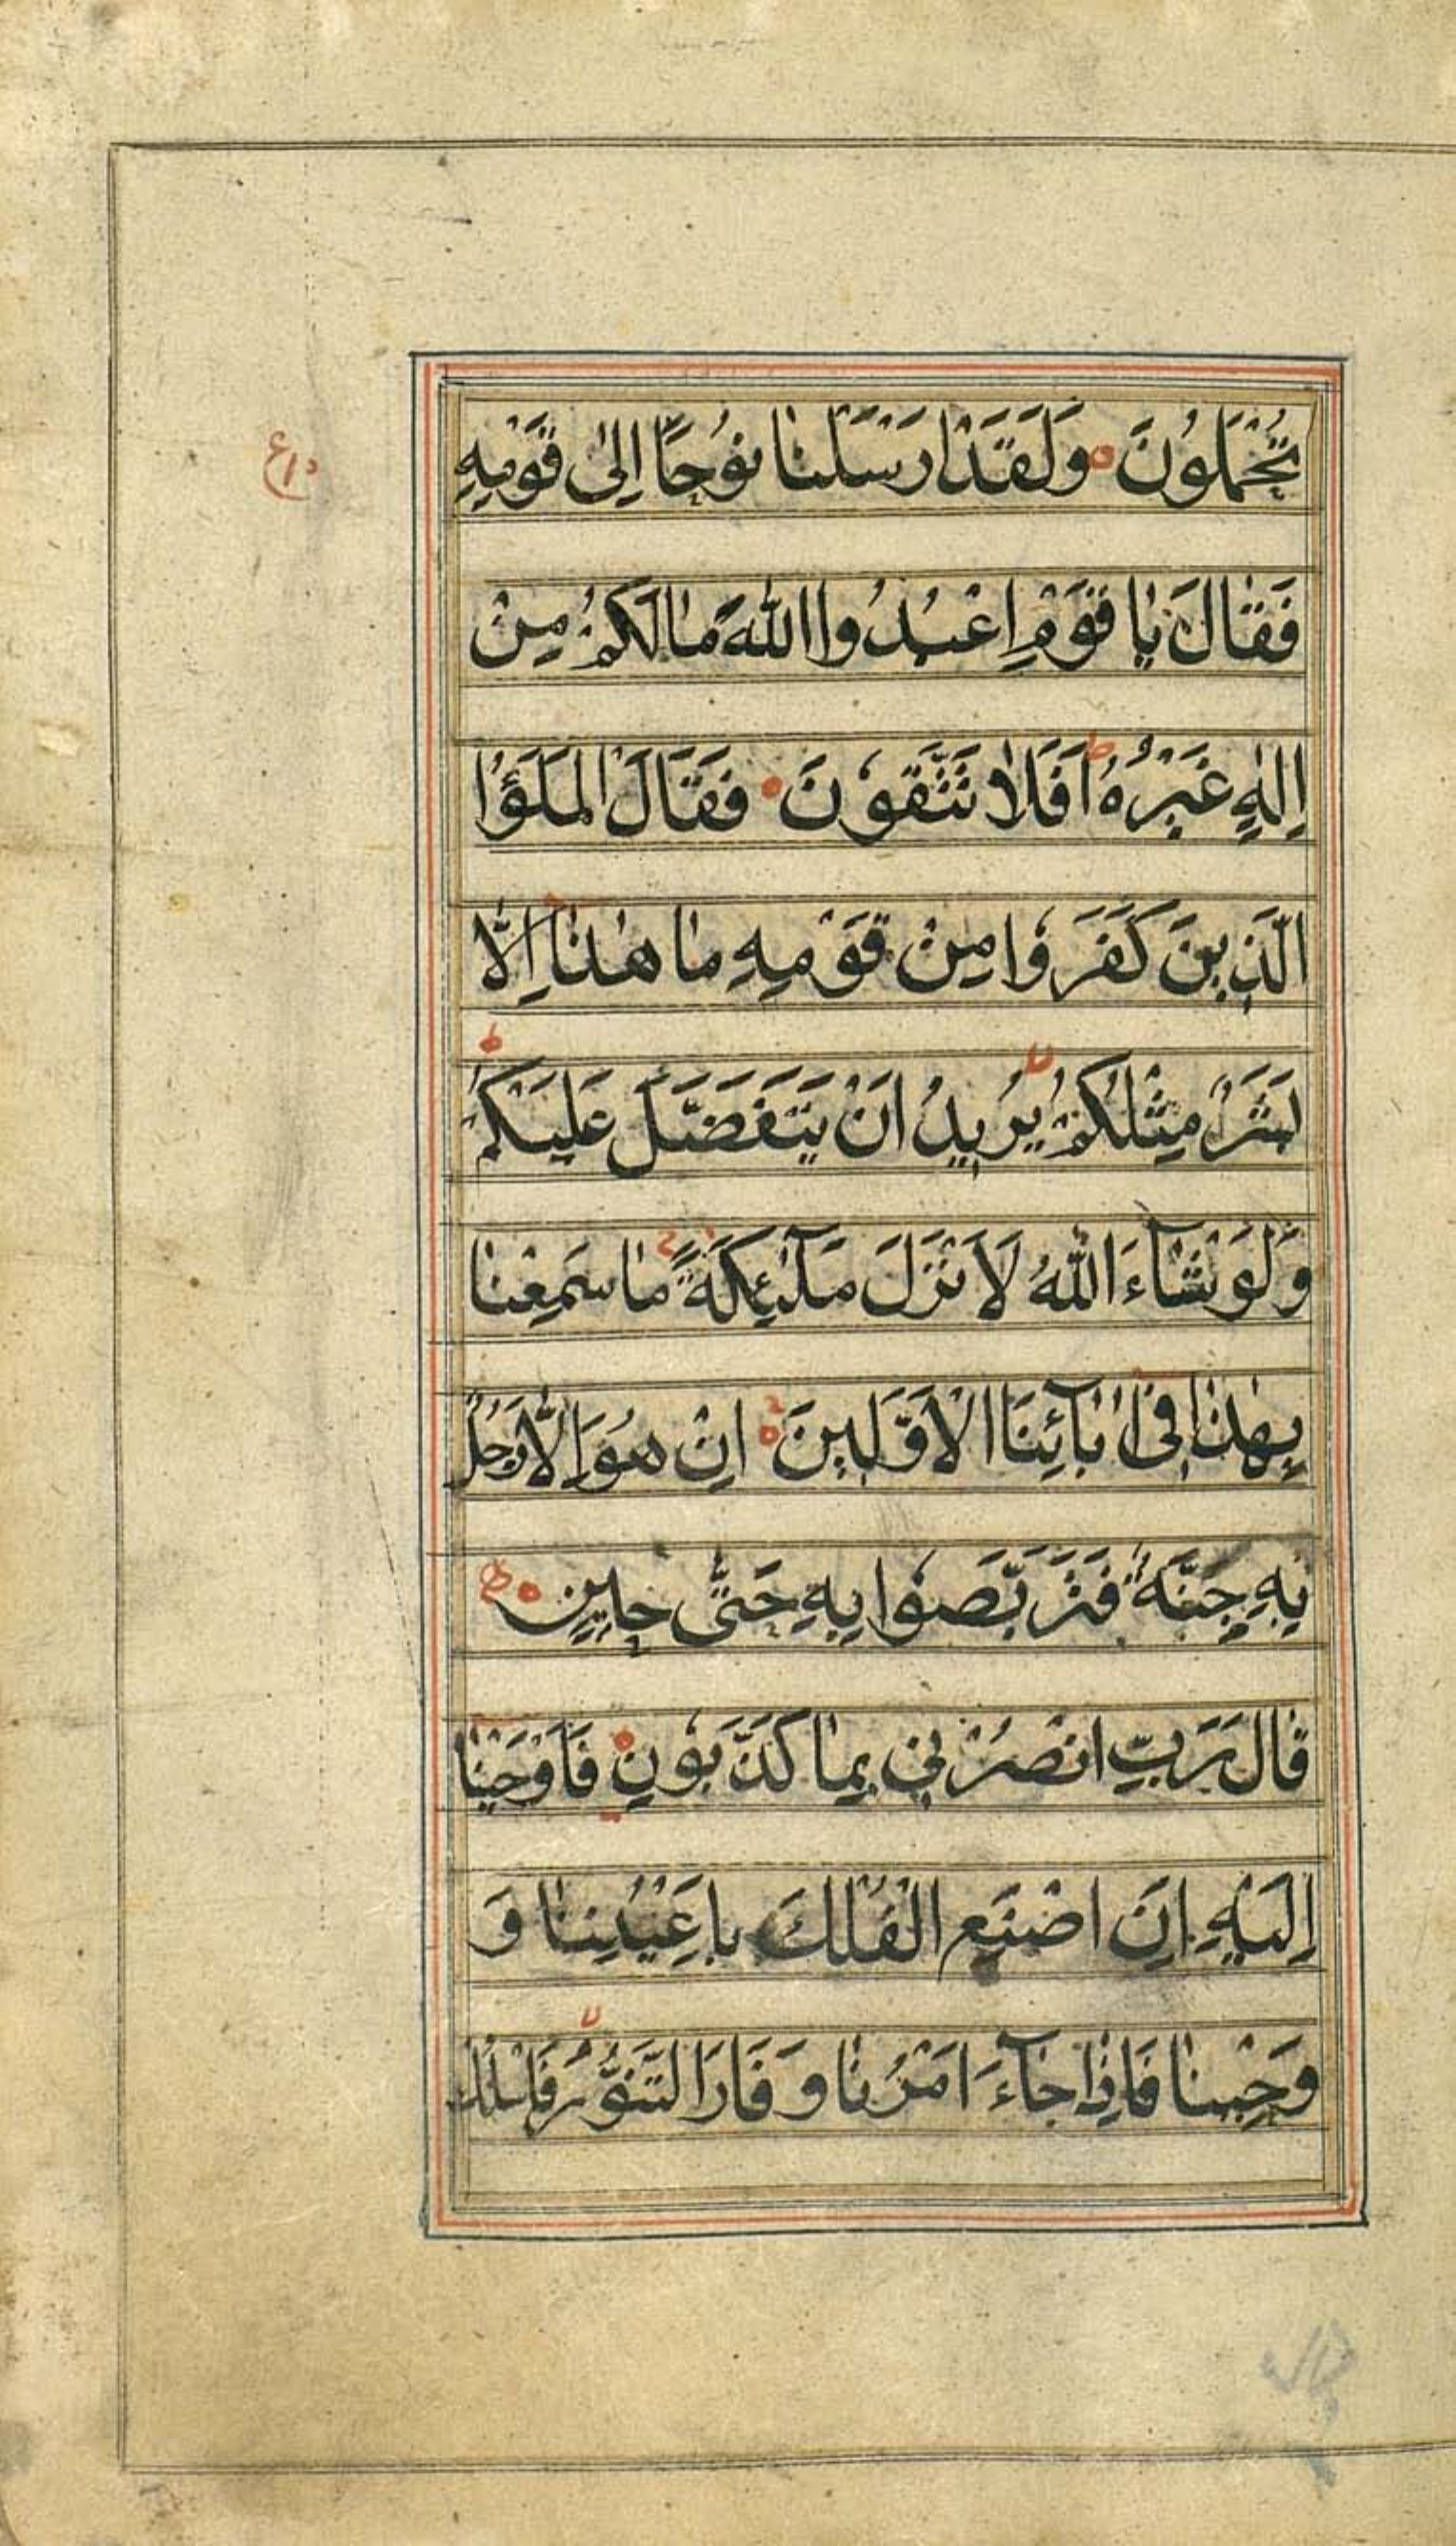 تُحْمَلُونَ ۝ وَلَقَدْ اَرْسَلْنٰا نُوْحًا اِلىٰ قَوْمِهٖ
فَقٰالَ يٰا قَوْمِ اعْبُدُوا اللّٰهَ مٰا لَكُمْ مِنْ
اِلٰهٍ غَيْرُهُ ط اَفَلٰا تَتَّقُوْنَ ۝ فَقٰالَ الْمَلَؤُا
الَّذِينَ كَفَرُوْا مِنْ قَوْمِهٖ مٰا هٰذٰا اِلّٰا
بَشَرٌ مِثْلُكُمْ لا يُرِيدُ اَنْ يَتَفَضَّلَ عَلَيْكُمْ ط
وَلَوْ شٰآءَ اللّٰهُ لَاَنْزَلَ مَلٰٓئِكَةً مٰا سَمِعْنٰا
بِهٰذٰا فِىٓ اٰبٰآئِنَا الْاَوَّلِينَ ۝ اِنْ هُوَ اِلّٰا رَجُلٌ
بِهٖ جِنَّةٌ فَتَرَبَّصُوْا بِهٖ حَتّٰى حِينٍ ۝
قٰالَ رَبِّ انْصُرْنِى بِمٰا كَذَّبُوْنِ ۝ فَاَوْحَيْنٰا
اِلَيْهِ اَنِ اصْنَعِ الْفُلْكَ بِاَعْيُنِنٰا وَ
وَحْيِنٰا فَاِذٰا جٰآءَ اَمْرُنٰا وَ فَارَ التَّنُّوْرُ لا فَاسْلُكْ